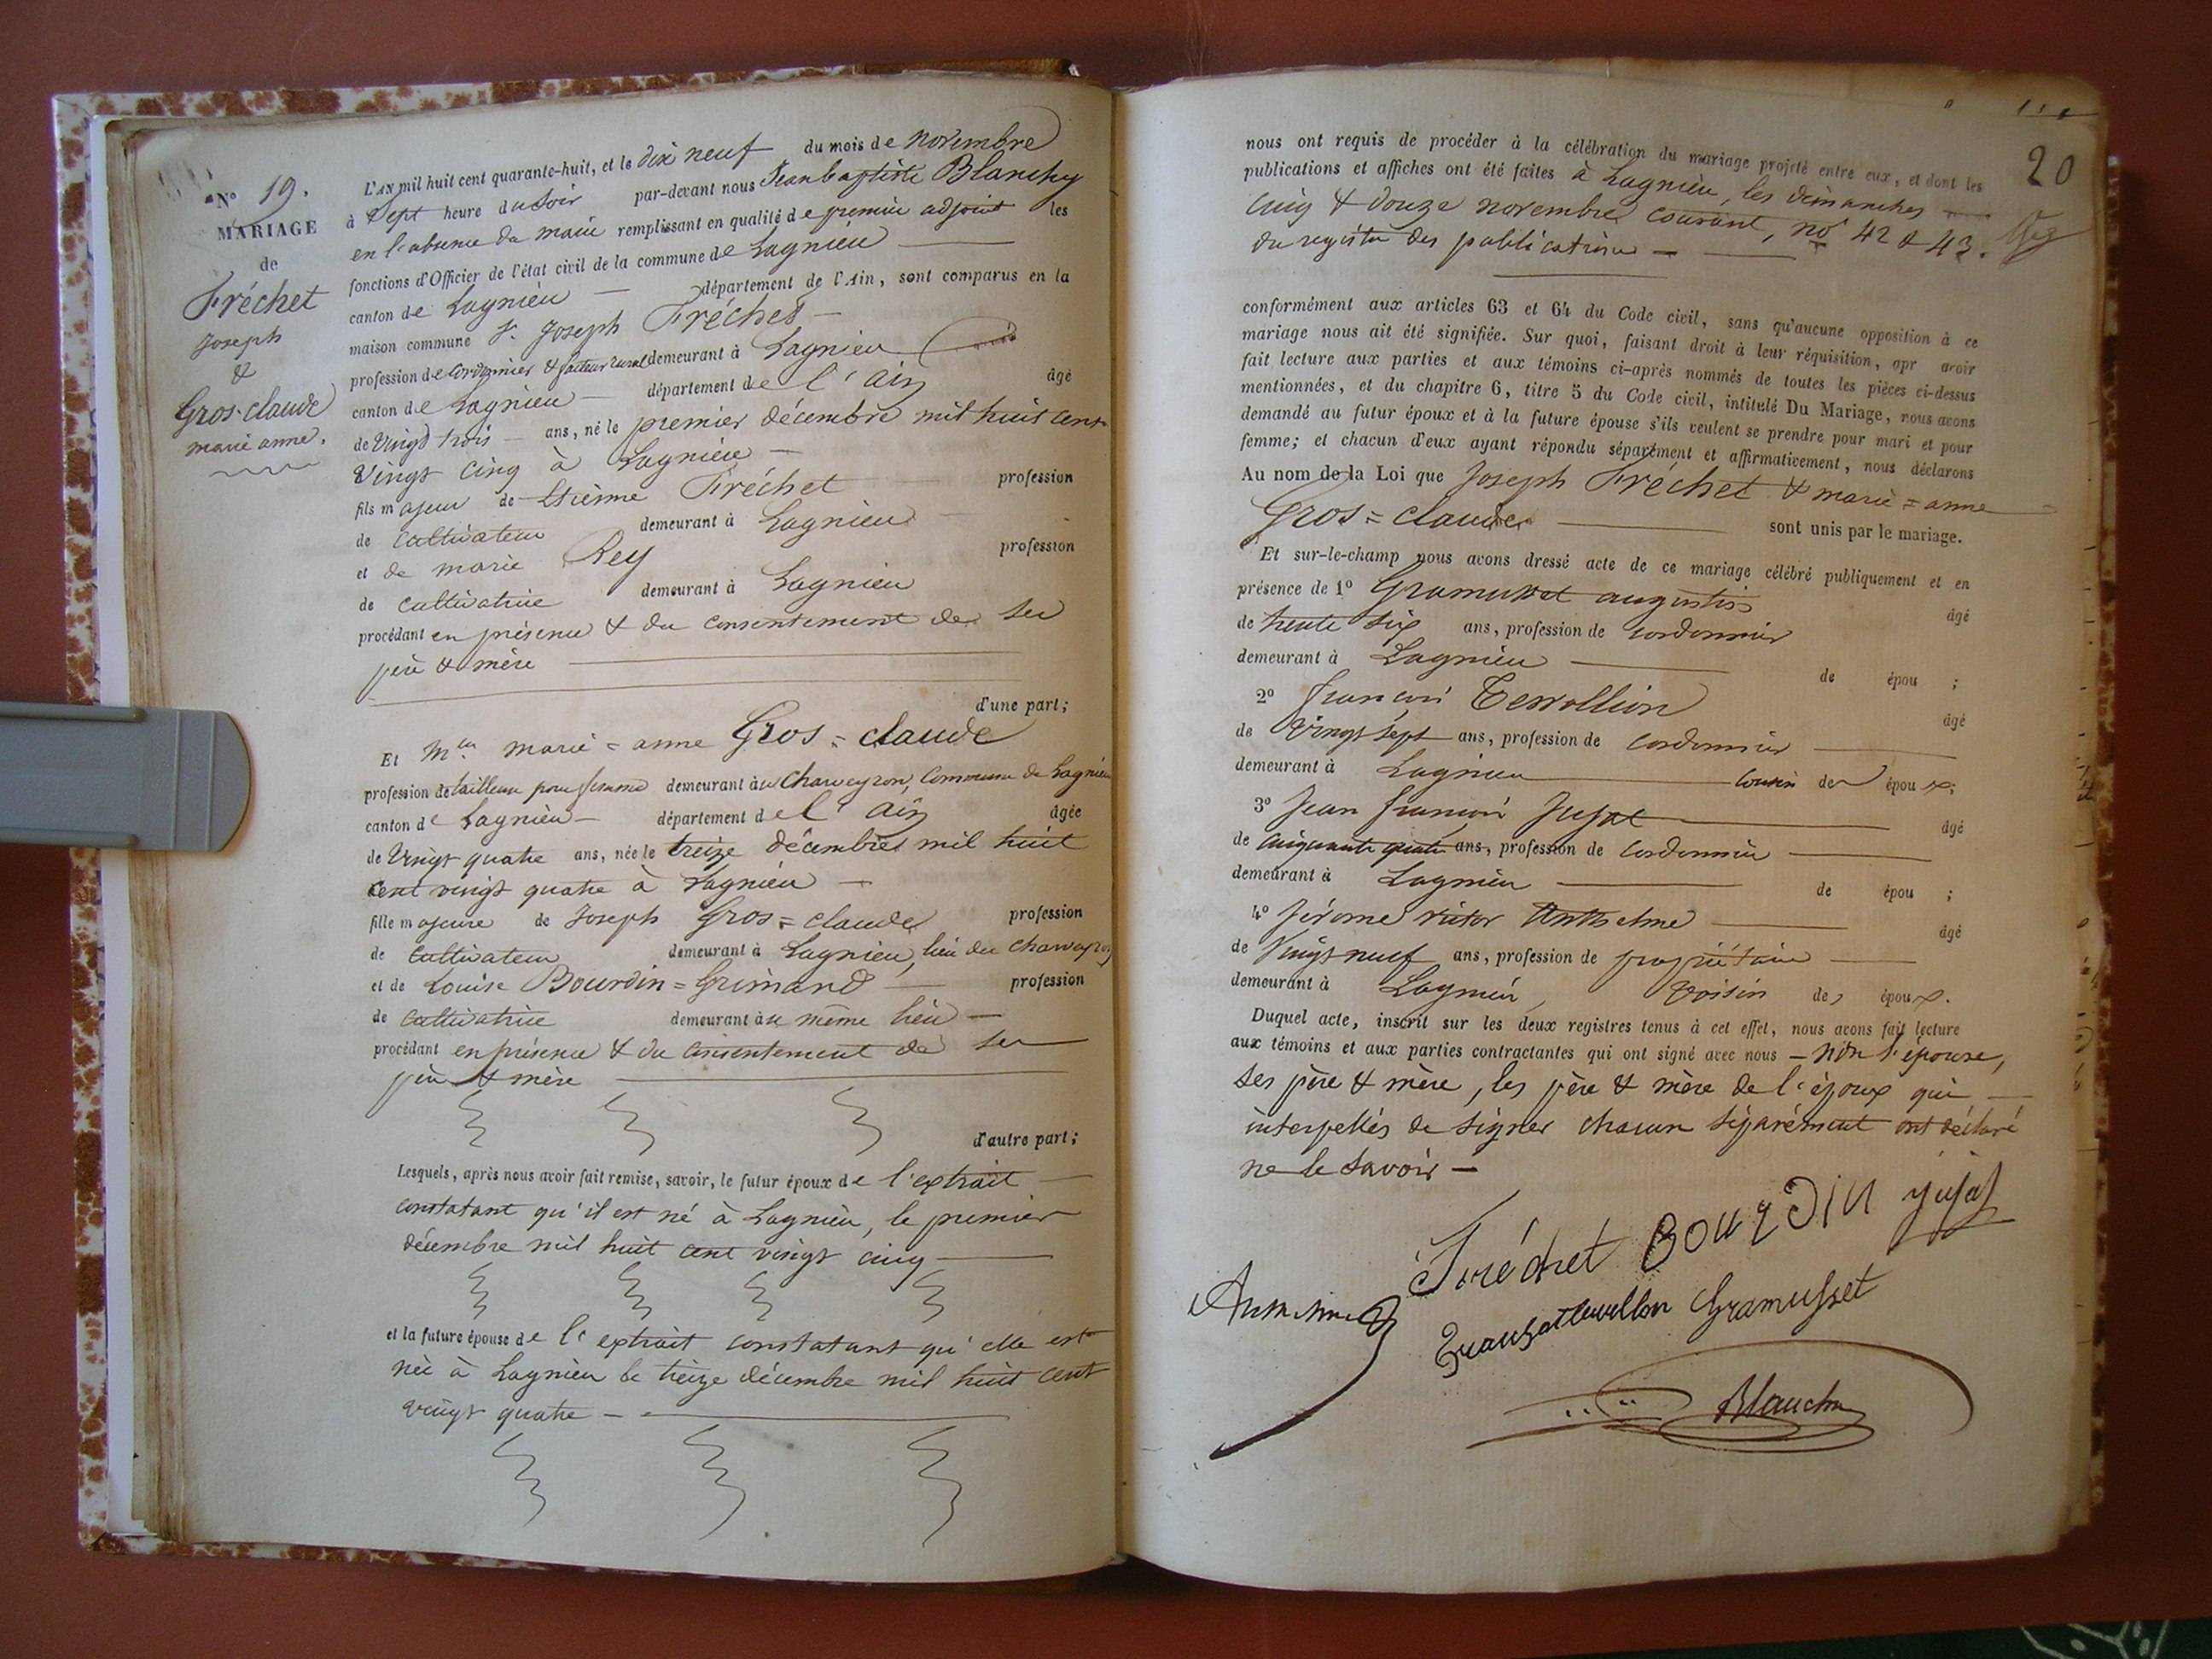 N° 19.
MARIAGE
de
Fréchet
Joseph
&
Gros-claude
marie anne.
L'AN mil huit cent quarante-huit, et le dix neuf du mois de novembre
à sept heure du soir par-devant nous Jean baptiste Blanchy
en l'absence du maire remplissant en qualité de premier adjoint les
fonctions d'Officier de l'état civil de la commune de Lagnieu
canton de Lagnieu département de l'Ain, sont comparus en la
maison commune Sr. Joseph Fréchet
profession de cordonnier & facteur rural demeurant à Lagnieu
canton de Lagnieu département de l'ain âgé
de vingt trois ans, né le premier décembre mil huit cent
vingt cinq à Lagnieu
fils majeur de Etienne Fréchet profession
de cultivateur demeurant à Lagnieu
et de marie Rey profession
de cultivatrice demeurant à Lagnieu
procédant en présence & du consentement de ses
père & mère
d'une part;
Et Mlle marie = anne Gros = claude
profession de tailleuse pour femme demeurant au Charveyron, Commune de Lagnieu
canton de Lagnieu département de l'ain âgée
de vingt quatre ans, née le treize décembre mil huit
cent vingt quatre à Lagnieu
fille majeure de Joseph Gros = claude profession
de cultivateur demeurant à Lagnieu, lieu du Charveyron
et de Louise Bourdin = Grimand profession
de cultivatrice demeurant au même lieu
procédant en présence & du consentement de ses
père & mère
d'autre part;
Lesquels, après nous avoir fait remise, savoir, le futur époux de l'extrait
constatant qu'il est né à Lagnieu, le premier
décembre mil huit cent vingt cinq
et la future épouse de l'extrait constatant qu'elle est
née à Lagnieu le treize décembre mil huit cent
vingt quatre
20
nous ont requis de procéder à la célébration du mariage projeté entre eux, et dont les
publications et affiches ont été faites à Lagnieu, les dimanches
cinq & douze novembre courant, no 42 & 43.
du registre des publications
conformément aux articles 63 et 64 du Code civil, sans qu'aucune opposition à ce
mariage nous ait été signifiée. Sur quoi, faisant droit à leur réquisition, apr avoir
fait lecture aux parties et aux témoins ci-après nommés de toutes les pièces ci-dessus
mentionnées, et du chapitre 6, titre 5 du Code civil, intitulé Du Mariage, nous avons
demandé au futur époux et à la future épouse s'ils veulent se prendre pour mari et pour
femme; et chacun d'eux ayant répondu séparément et affirmativement, nous déclarons
Au nom de la Loi que Joseph Fréchet & marie = anne
Gros = claude sont unis par le mariage.
Et sur-le-champ nous avons dressé acte de ce mariage célébré publiquement et en
présence de 1° Gramusset augustin âgé
de trente six ans, profession de cordonnier
demeurant à Lagnieu de épou ;
2° françois Terrollion âgé
de vingt sept ans, profession de cordonnier
demeurant à Lagnieu cousin de époux;
3° Jean françois Jujat âgé
de cinquante quatre ans, profession de cordonnier
demeurant à Lagnieu de épou ;
4° Jérome victor Anthelme âgé
de vingt neuf ans, profession de propriétaire
demeurant à Lagnieu, voisin des époux.
Duquel acte, inscrit sur les deux registres tenus à cet effet, nous avons fait lecture
aux témoins et aux parties contractantes qui ont signé avec nous – non l'épouse,
ses père & mère, les père & mère de l'époux qui
interpellés de signer chacun séparément ont déclaré
ne le savoir –
Fréchet Bourdin jujat
Gramusset
Blanchy